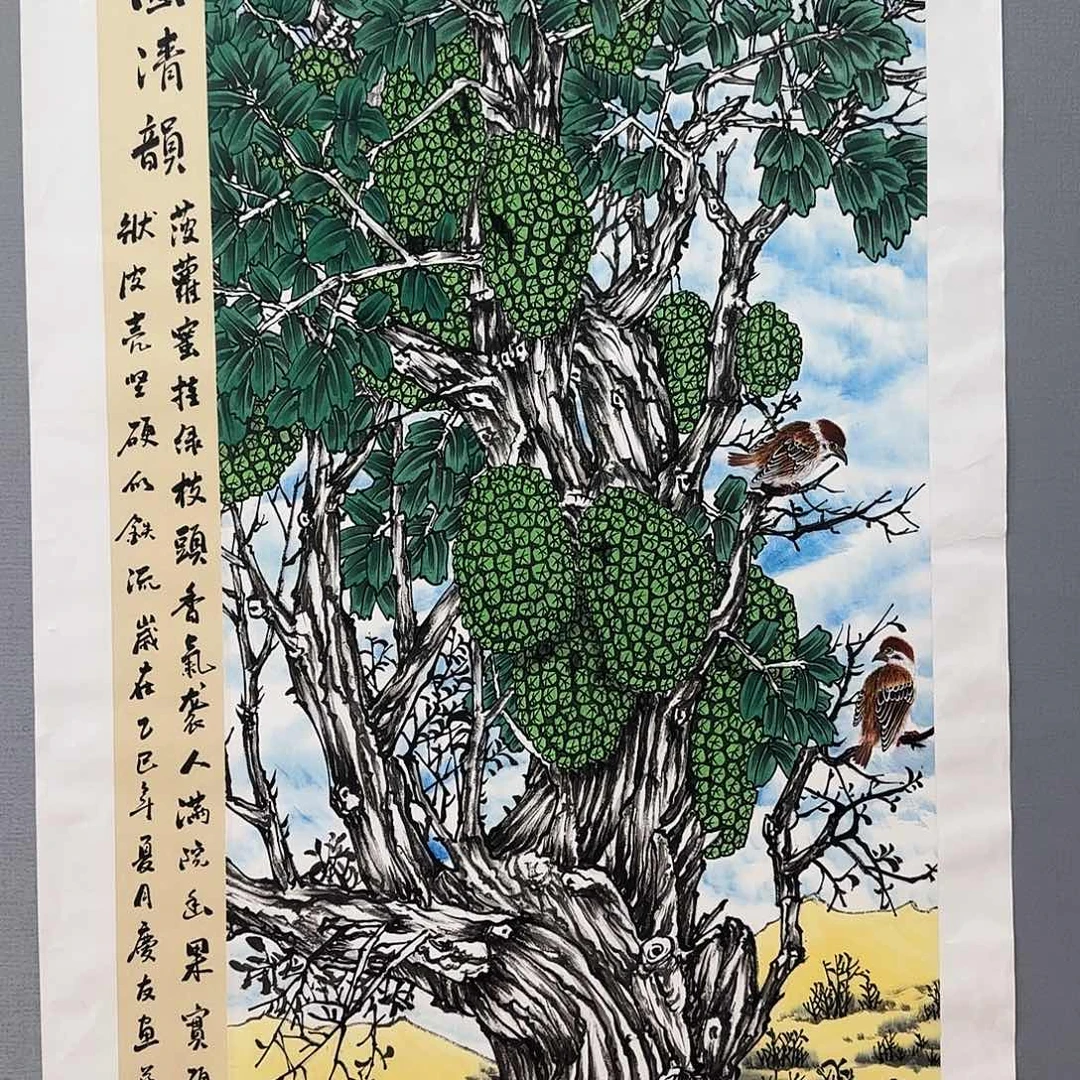 清韻
菠蘿蜜挂绿枝頭香氣袭人滿院幽果實
狀皮壳坚硬似鉄流歲在乙巳年夏月慶友画